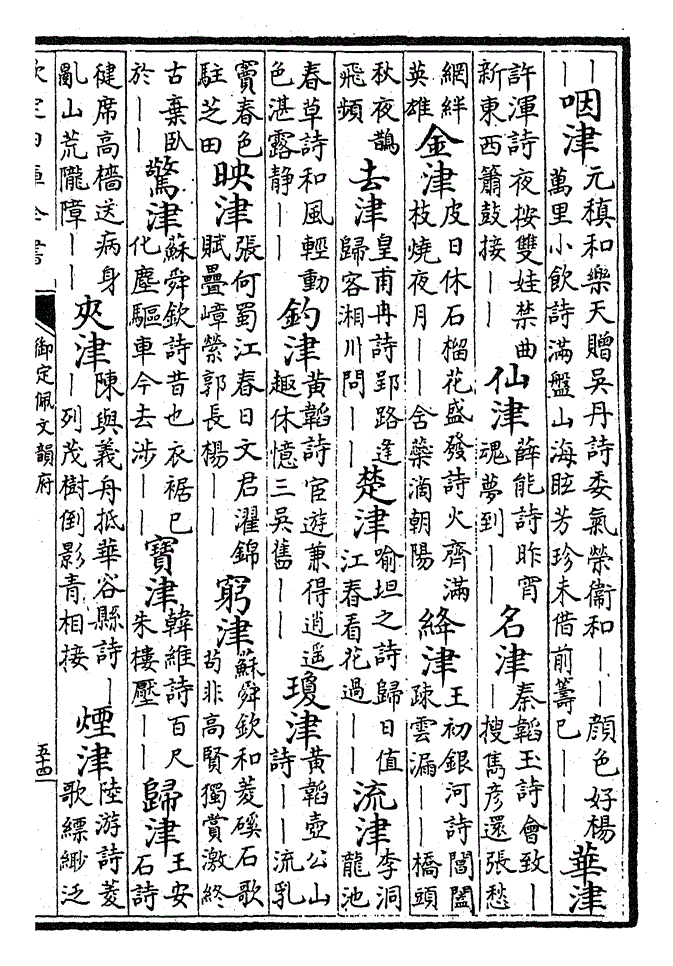 ｜｜咽津元稹和樂天贈吳丹詩委氣榮衞和｜｜顏色好楊萬里小飲詩滿盤山海眩芳珍未借前籌已｜｜華津
許渾詩夜按雙娃禁曲新東西簫鼓接｜｜仙津薛能詩昨宵魂夢到｜｜名津秦韜玉詩會致｜｜搜雋彥還張愁
網絆英雄金津皮日休石榴花盛發詩火齊滿枝燒夜月｜｜含蘂滴朝陽絳津王初銀河詩閶闔疎雲漏｜｜橋頭
秋夜鵲飛頻去津皇甫冉詩郢路逢歸客湘川問｜｜楚津喻坦之詩歸日值江春看花過｜｜流津李洞龍池
春草詩和風輕動色湛露静｜｜釣津黃韜詩宦遊兼得逍遥趣休憶三吳舊｜｜瓊津黃韜壺公山詩｜｜流乳
竇春色駐芝田映津張何蜀江春日文君濯錦賦疊嶂縈郭長楊｜｜窮津蘇舜欽和菱磎石歌茍非高賢獨賞激終
古棄臥於｜｜驚津蘇舜欽詩昔也衣裾已化塵驅車今去涉｜｜寶津韓維詩百尺朱樓壓｜｜歸津王安石詩
健席高檣送病身亂山荒隴障｜｜夾津陳與義舟抵華容縣詩｜｜列茂樹倒影青相接煙津陸游詩菱歌縹緲泛
欽定四庫全書
御定佩文韻府
五十四